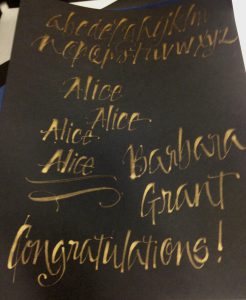 abcdefghijklm
nopqrstuvwxyz
Alice
Alice
Alice
Alice
Barbara
Grant
Congratulations!